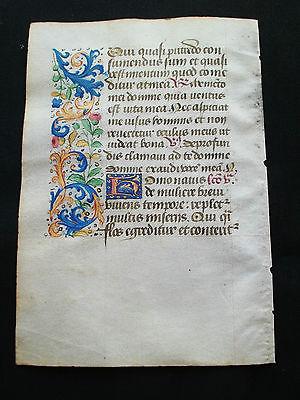 Qui quasi putredo con
sumendus sum et quasi
vestimentum quod come
ditur a tinea. ℟ Memento
mei domine quia ventus
est vita mea Nec aspiciat
me visus hominis et non
revertetur oculus meus ut
videat bona ℣ De profun
dis clamavi ad te domine
domine exaudi voce mea.
Homo natus
de muliere brevi
vivens tempore: replet
multis miseriis. Qui q̄si
flos egreditur et conterit